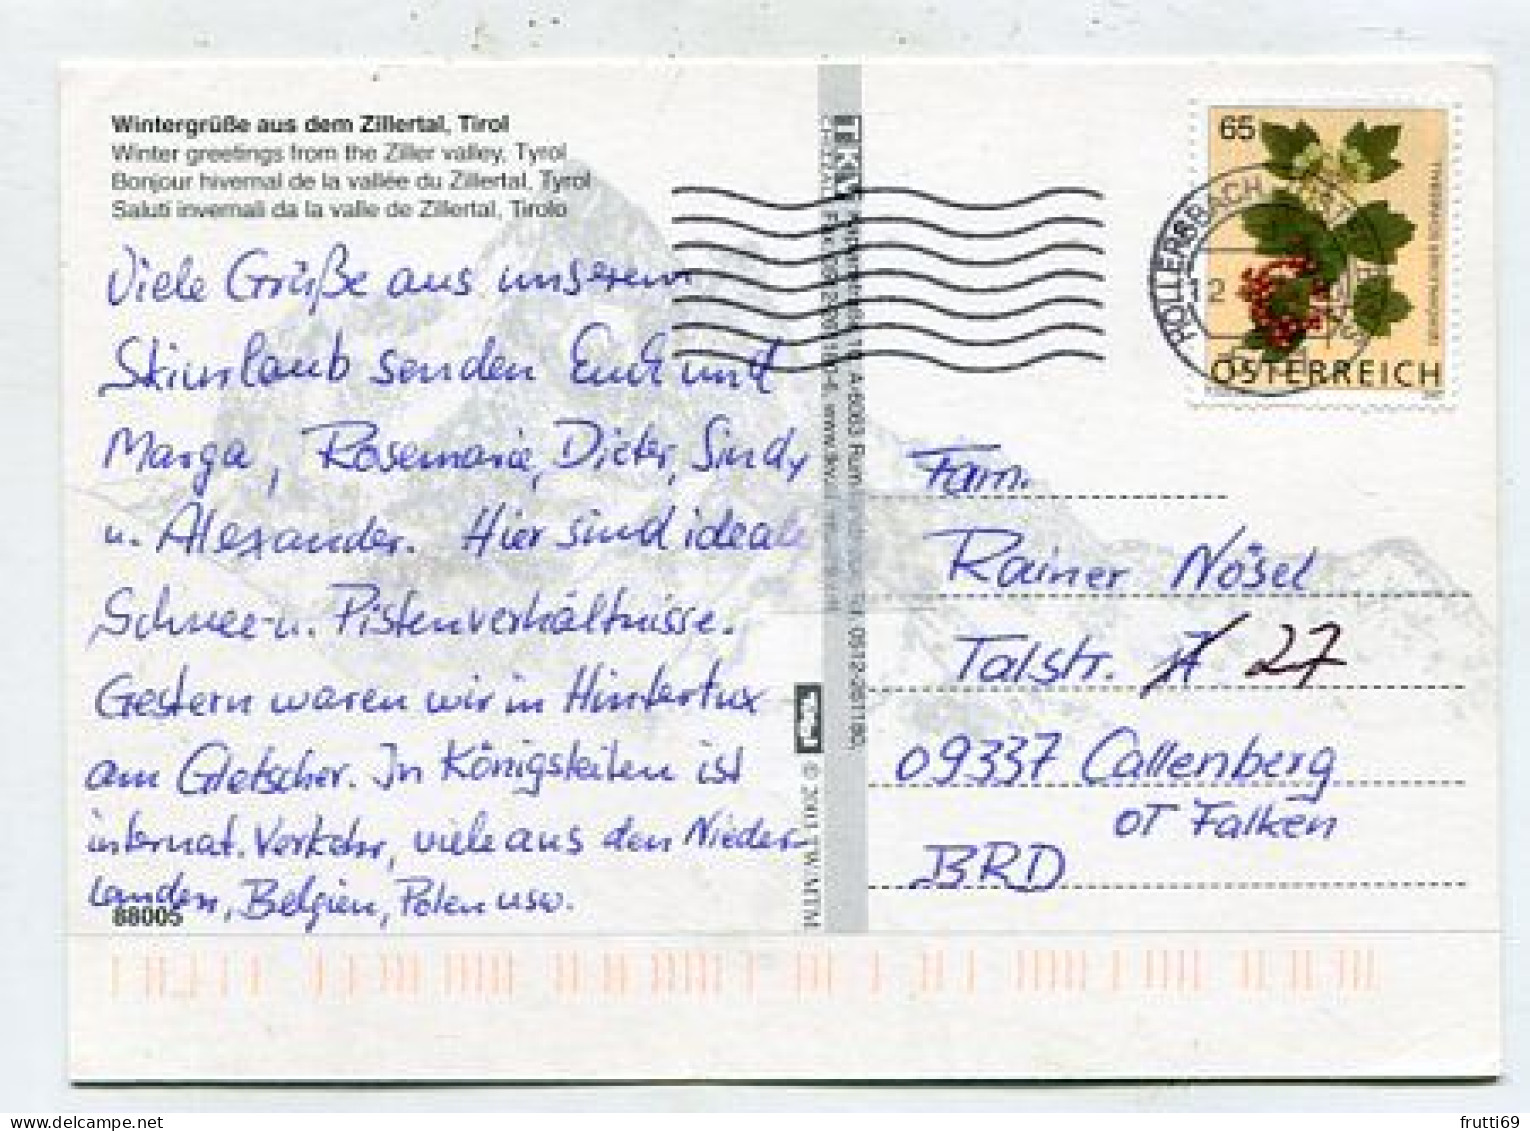 Wintergrüße aus dem Zillertal, Tirol
Winter greetings from the Ziller valley, Tyrol
Bonjour hivernal de la vallée du Zillertal, Tyrol
Saluti invernali da la valle de Zillertal, Tirolo
Viele Grüße aus unserem
Skiurlaub senden Euch und
Marga, Rosemarie, Dieter, Sindy
u. Alexander. Hier sind ideale
Schnee- u. Pistenverhältnisse.
Gestern waren wir in Hintertux
am Gletscher. In Königsleiten ist
internat. Verkehr, viele aus den Nieder-
landen, Belgien, Polen usw.
88005
65
ÖSTERREICH
Fam.
Rainer Nösel
Talstr. 27
09337 Callenberg
OT Falken
BRD
frutti69